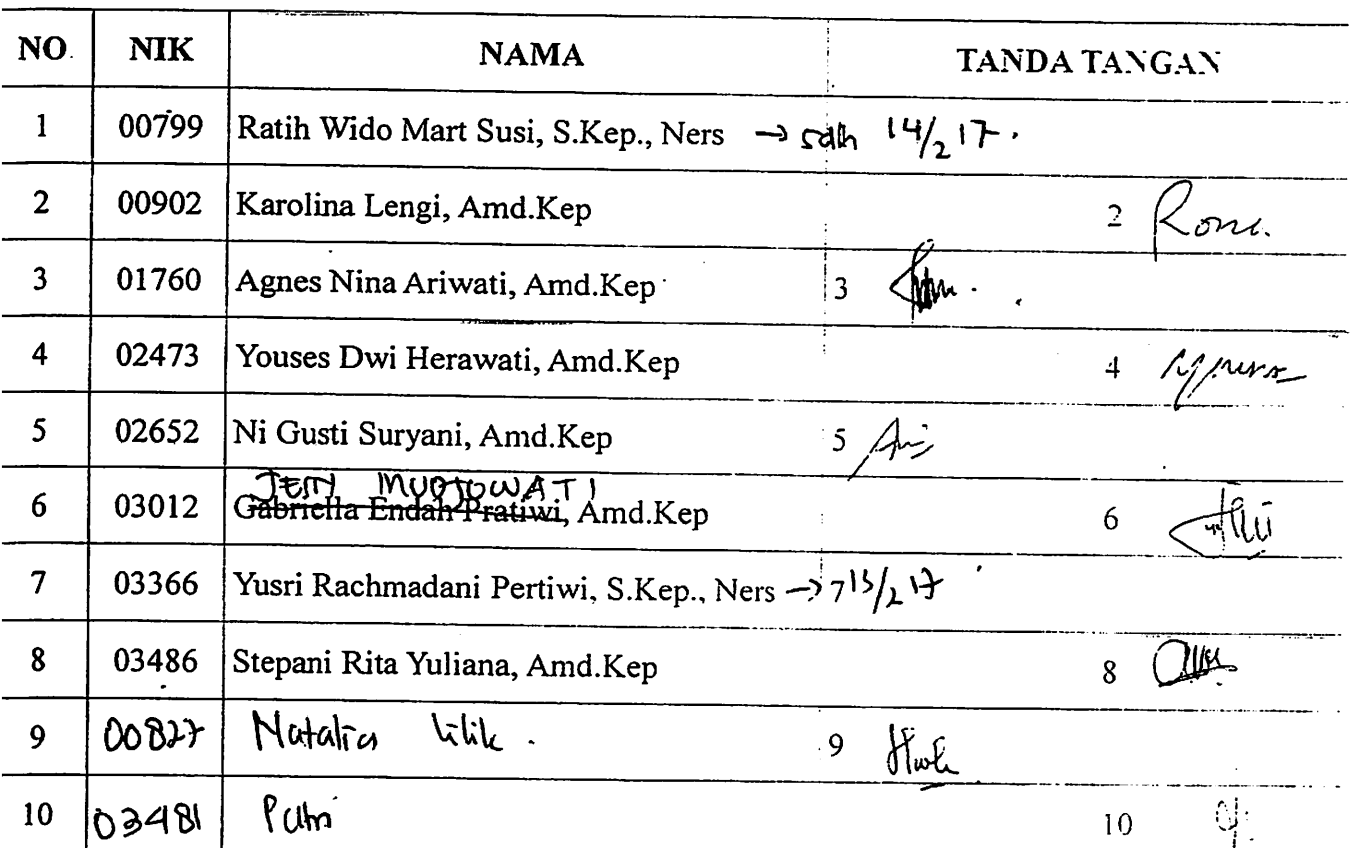 NO. NIK NAMA TANDA TANGAN
1 00799 Ratih Wido Mart Susi, S.Kep., Ners → sdh 14/2 17.
2 00902 Karolina Lengi, Amd.Kep 2
3 01760 Agnes Nina Ariwati, Amd.Kep 3
4 02473 Youses Dwi Herawati, Amd.Kep 4
5 02652 Ni Gusti Suryani, Amd.Kep 5
MUDJOWATI
6 03012 Gabriella Endah Pratiwi, Amd.Kep 6
7 03366 Yusri Rachmadani Pertiwi, S.Kep., Ners → 7 15/2 17
8 03486 Stepani Rita Yuliana, Amd.Kep 8
9 00827 Natalia Lilik. 9
10 03481 Putri 10